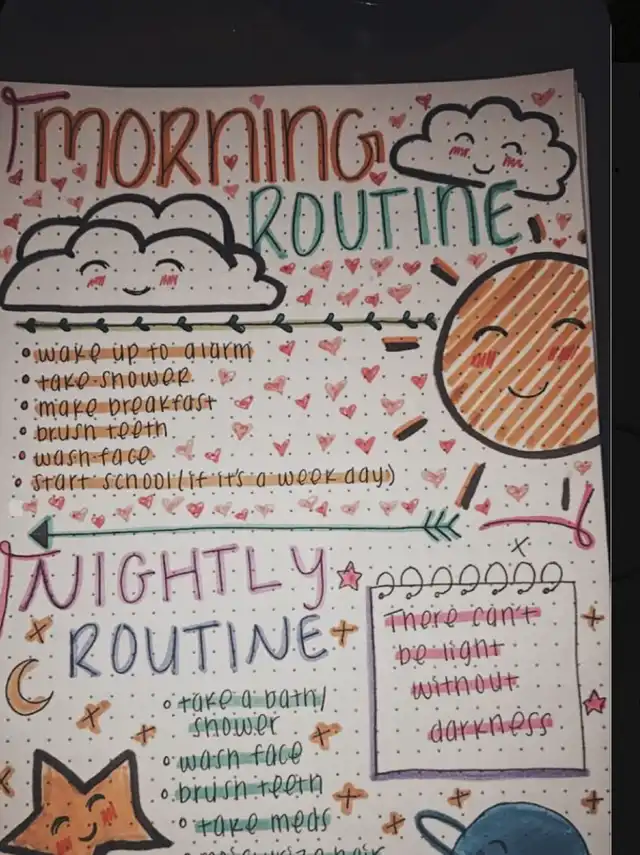 MORNING
ROUTINE
wake up to alarm
take shower
make breakfast
brush teeth
wash face
start school (if it's a week day)
NIGHTLY
ROUTINE
There can't
be light
without
darkness
take a bath/
shower
wash face
brush teeth
take meds